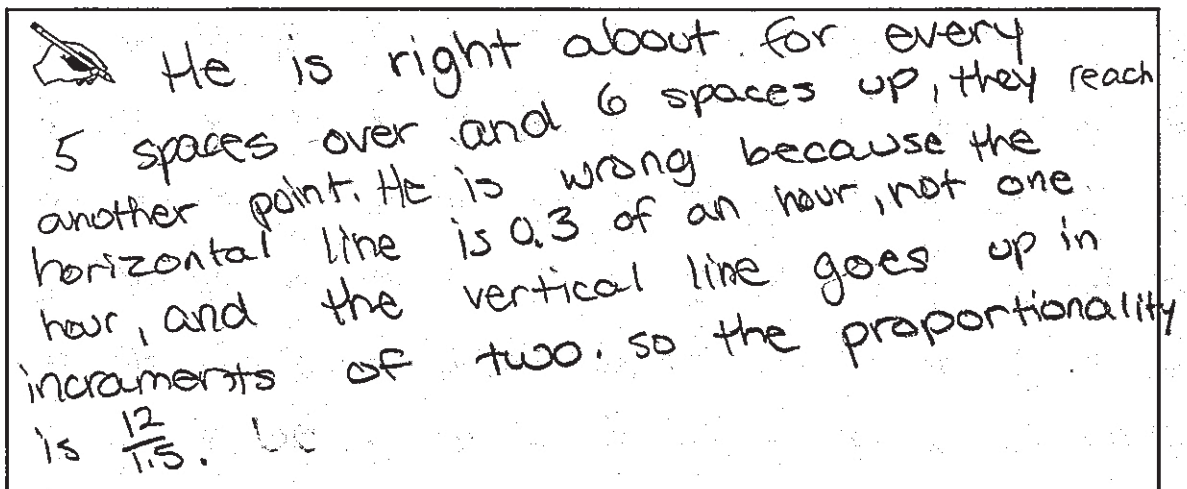 He is right about for every
5 spaces over and 6 spaces up, they reach
another point. He is wrong because the
horizontal line is 0.3 of an hour, not one
hour, and the vertical line goes up in
incraments of two. so the proportionality
is 12/1.5.